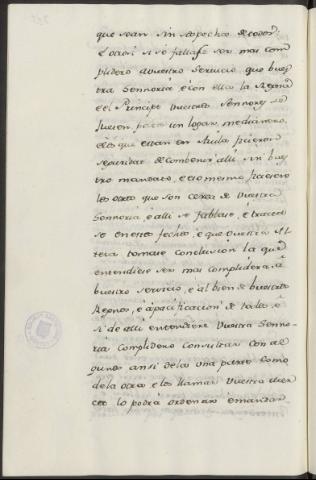 que sean sin sospecha de todos;
è ocasi si se fallase ser mas com
plidero avuestro Servicio, que bues
tra Sennoria è con ellos la Reyna
è el Principe vuestros Sennores se
fuesen para un logar medianero,
è los que estan en Avila fuesen
seguridat de combenir alli sin bues
tro mandato, è eso mesmo ficiesen
los otros que son cerca de vuestra
Sennoria, è alli se fablase, è tractá
se en estos fechos, è que vuestra Al
teza tomase conclusion la que
entendiese ser mas complidera à
buestro servicio, è al bien de buestros
Regnos, è à pacificacion de todos, è
si de alli entendiere Vuestra Senno-
ria complidero consultar con al
gunos ansi de la una parte como
de la otra, e los llamar Vuestra mer
ced lo podrá ordenar è mandar